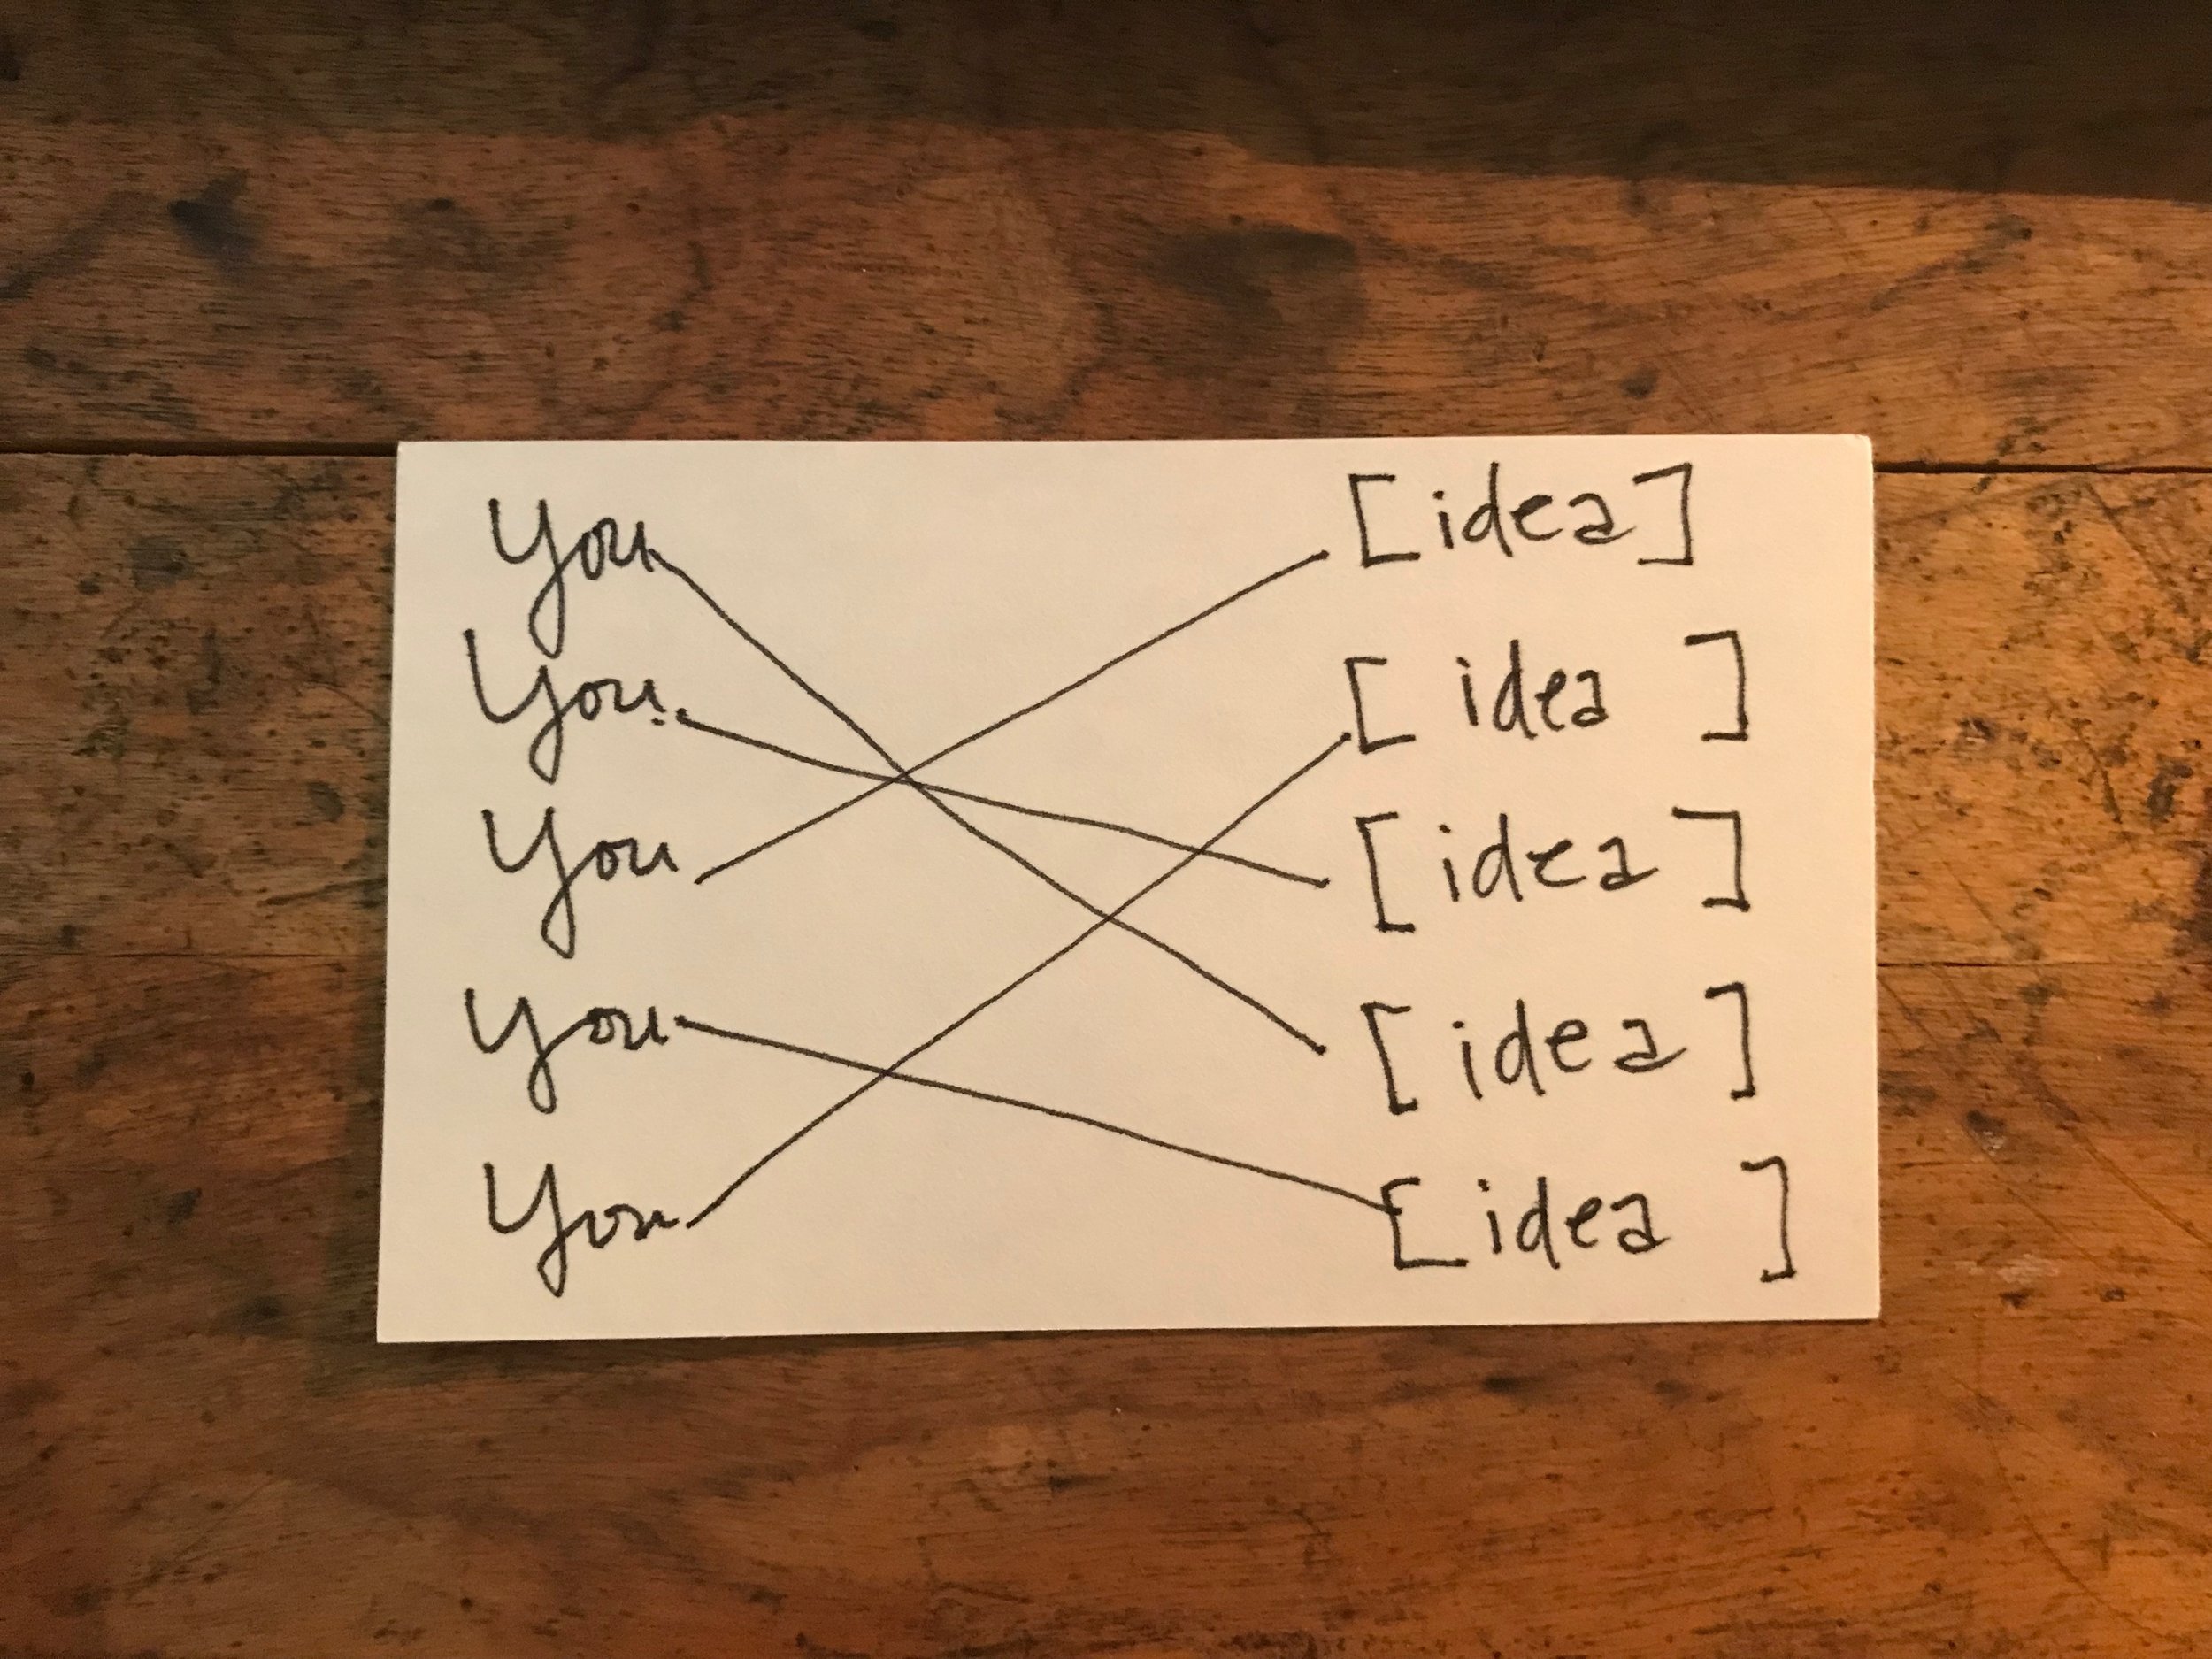 You [idea]
You [idea ]
You [idea ]
You [idea ]
You [idea ]